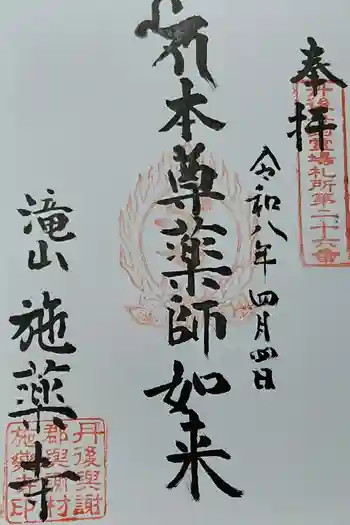 奉拝
丹後 霊場札所第二十六番
令和八年四月四日
本尊薬師如来
滝山 施薬寺
丹後與謝
郡與謝村
施藥寺印